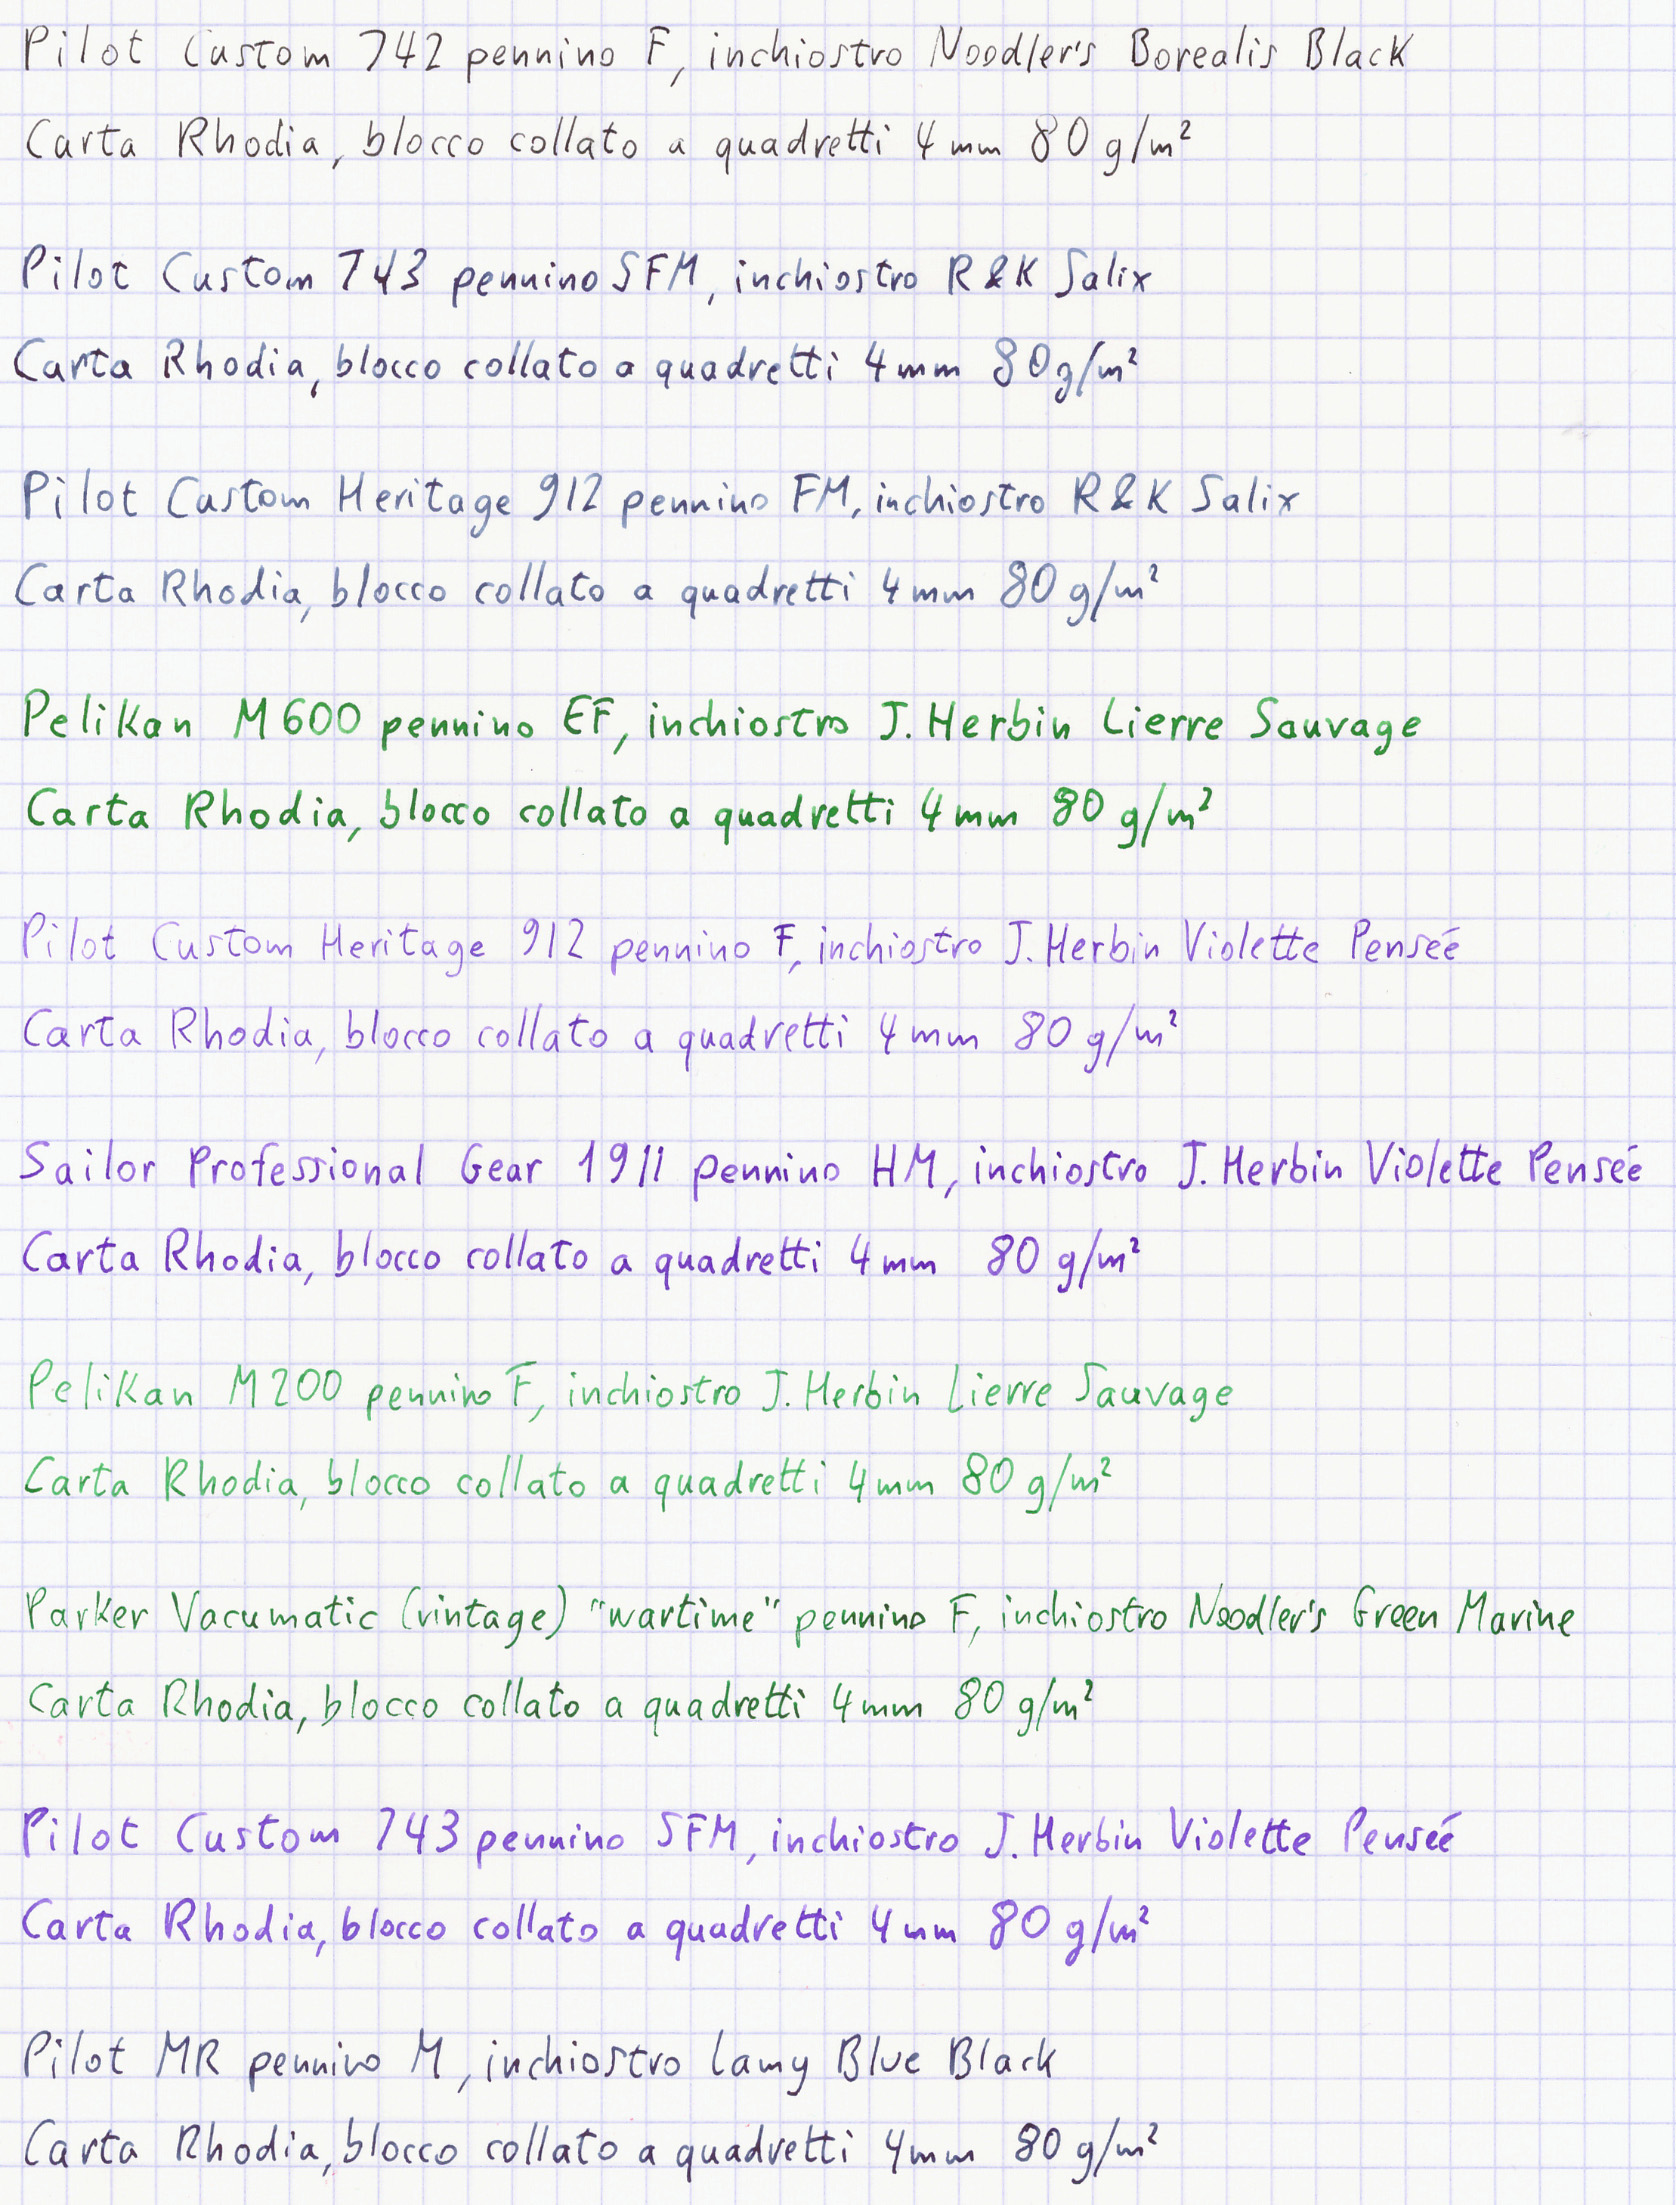 Pilot Custom 742 pennino F, inchiostro Noodler's Borealis Black
Carta Rhodia, blocco collato a quadretti 4 mm 80 g/m²
Pilot Custom 743 pennino SFM, inchiostro R&K Salix
Carta Rhodia, blocco collato a quadretti 4 mm 80 g/m²
Pilot Custom Heritage 912 pennino FM, inchiostro R&K Salix
Carta Rhodia, blocco collato a quadretti 4 mm 80 g/m²
Pelikan M600 pennino EF, inchiostro J. Herbin Lierre Sauvage
Carta Rhodia, blocco collato a quadretti 4 mm 80 g/m²
Pilot Custom Heritage 912 pennino F, inchiostro J. Herbin Violette Penseé
Carta Rhodia, blocco collato a quadretti 4 mm 80 g/m²
Sailor Professional Gear 1911 pennino HM, inchiostro J. Herbin Violette Penseé
Carta Rhodia, blocco collato a quadretti 4 mm 80 g/m²
Pelikan M200 pennino F, inchiostro J. Herbin Lierre Sauvage
Carta Rhodia, blocco collato a quadretti 4 mm 80 g/m²
Parker Vacumatic (vintage) "wartime" pennino F, inchiostro Noodler's Green Marine
Carta Rhodia, blocco collato a quadretti 4 mm 80 g/m²
Pilot Custom 743 pennino SFM, inchiostro J. Herbin Violette Penseé
Carta Rhodia, blocco collato a quadretti 4 mm 80 g/m²
Pilot MR pennino M, inchiostro Lamy Blue Black
Carta Rhodia, blocco collato a quadretti 4 mm 80 g/m²